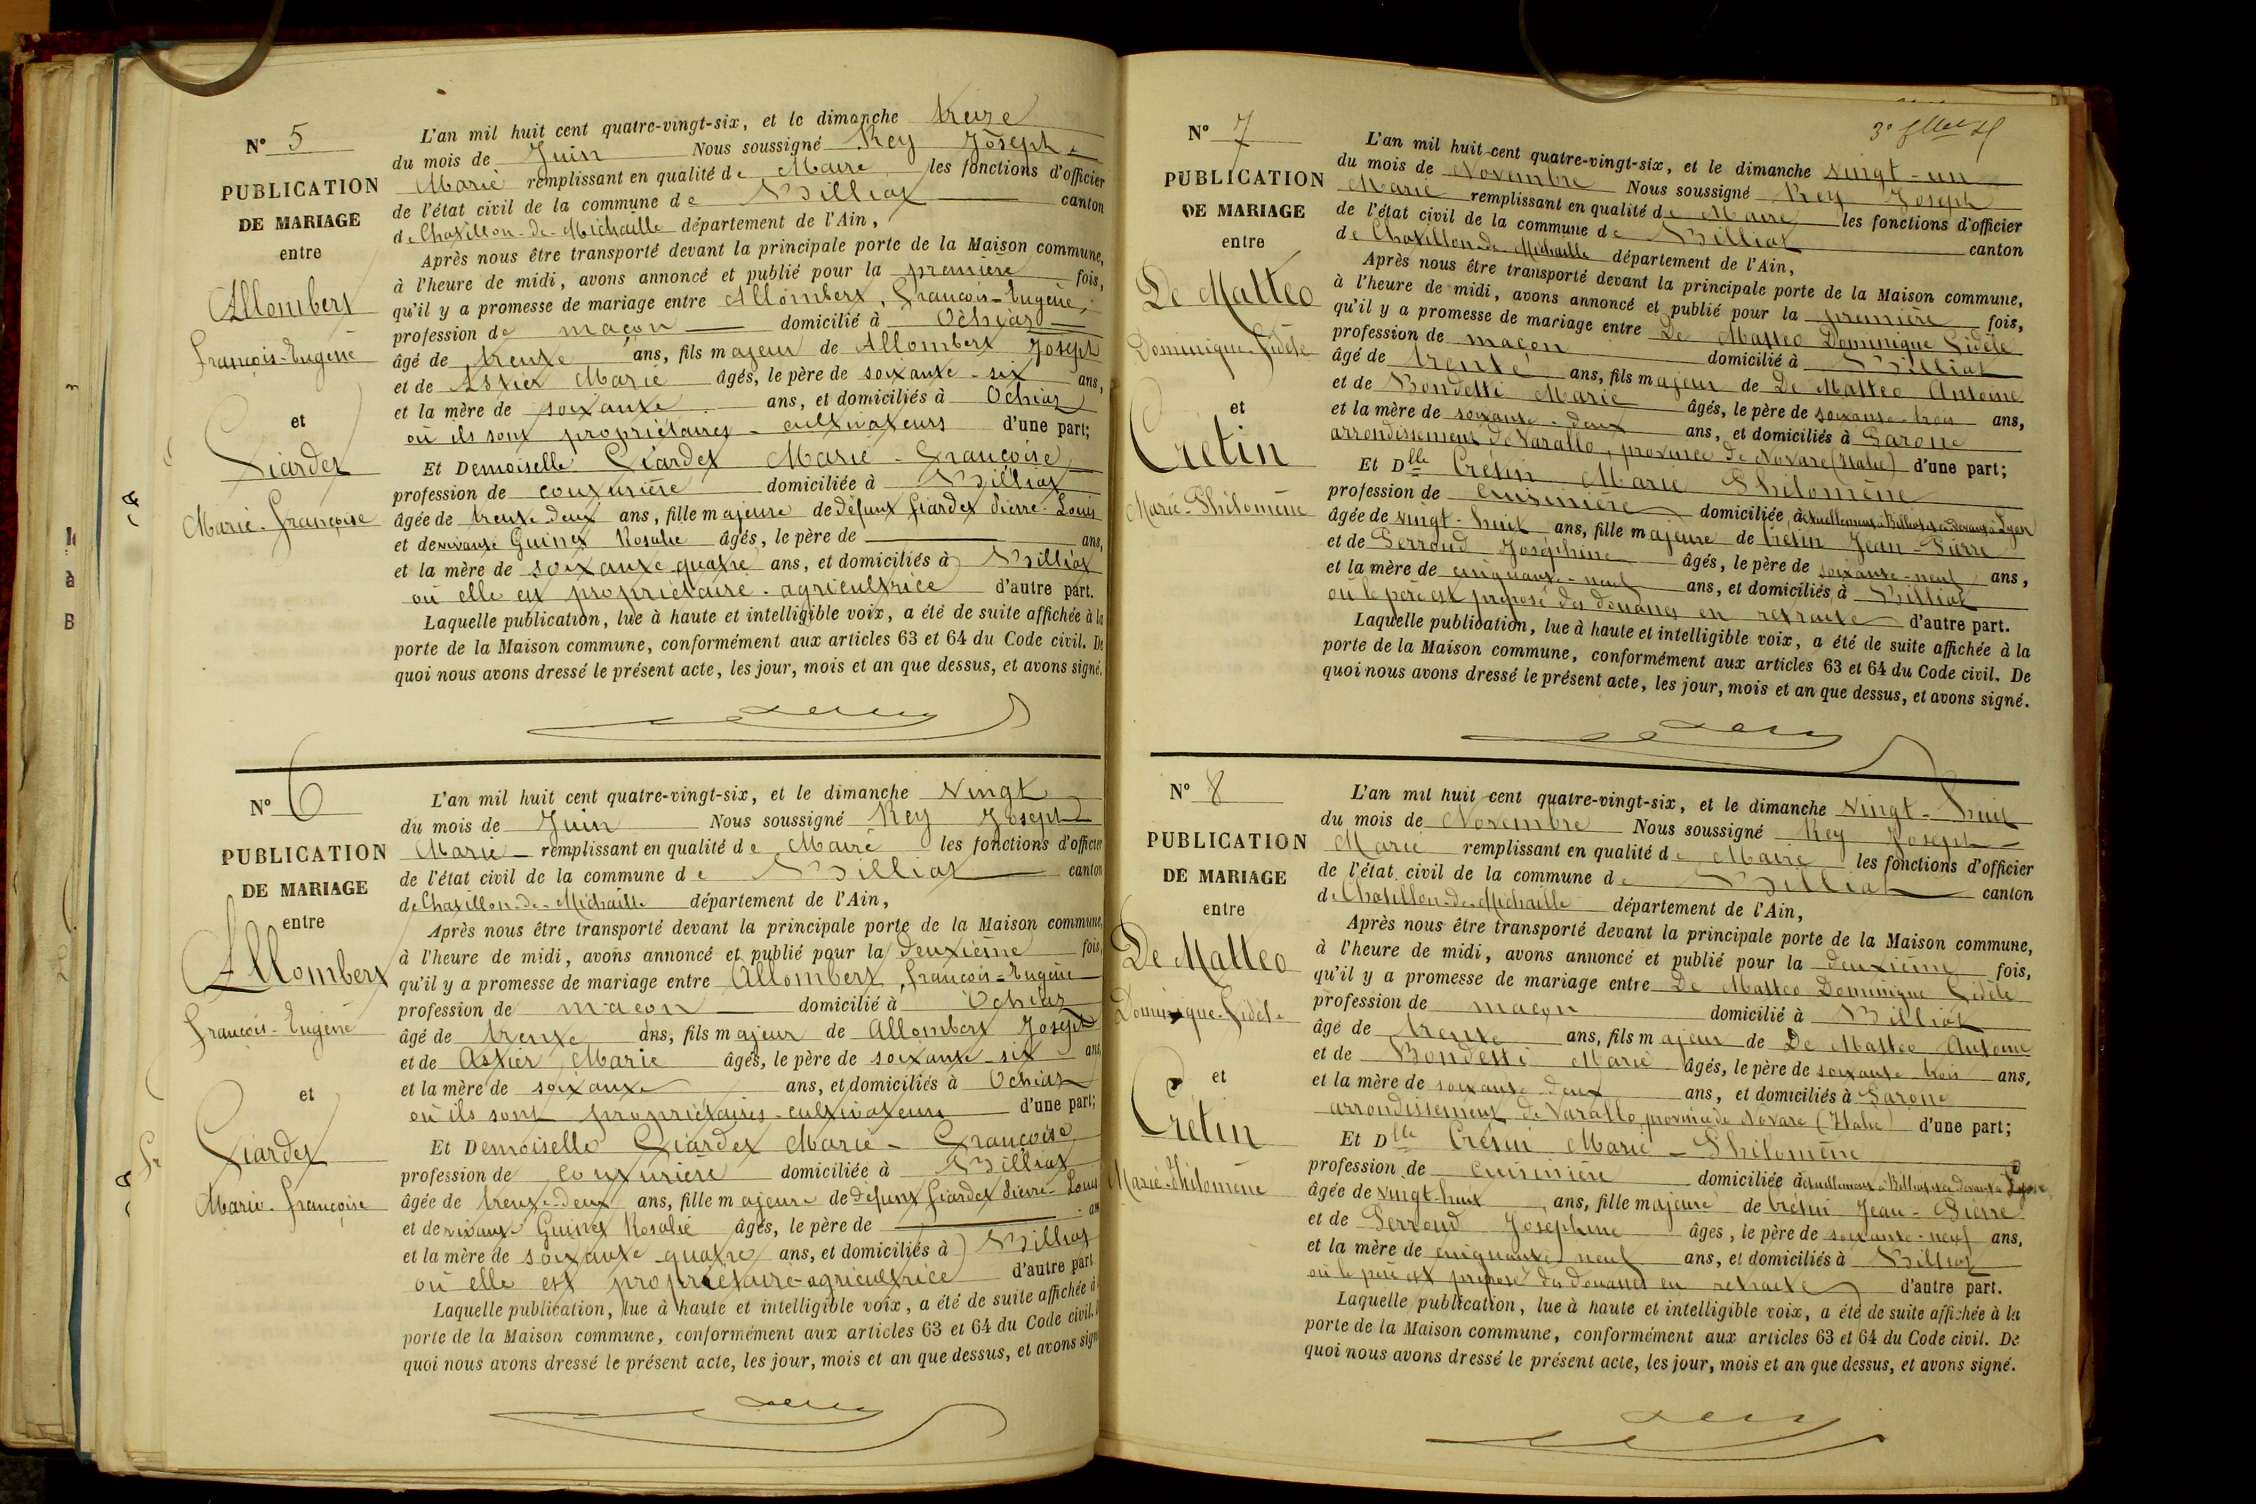 N° 5
PUBLICATION
DE MARIAGE
entre
Allombert
François-Eugène
et
Giardet
Marie-Françoise
L'an mil huit cent quatre-vingt-six, et le dimanche treize
du mois de Juin Nous soussigné Rey Joseph-
Marie remplissant en qualité de Maire les fonctions d'officier
de l'état civil de la commune de Billiat canton
de Chatillon-de-Michaille département de l'Ain,
Après nous être transporté devant la principale porte de la Maison commune,
à l'heure de midi, avons annoncé et publié pour la première fois,
qu'il y a promesse de mariage entre Allombert, François-Eugène,
profession de maçon domicilié à Ochiaz
âgé de trente ans, fils majeur de Allombert Joseph
et de Astier Marie âgés, le père de soixante-six ans,
et la mère de soixante ans, et domiciliés à Ochiaz
où ils sont propriétaires-cultivateurs d'une part;
Et Demoiselle Giardet Marie-Françoise
profession de couturière domiciliée à Billiat
âgée de trente-deux ans, fille majeure de défunt Giardet Pierre-Louis
et de vivante Guinet Rosalie âgés, le père de ans,
et la mère de soixante quatre ans, et domiciliés à Billiat
où elle est propriétaire-agricultrice d'autre part.
Laquelle publication, lue à haute et intelligible voix, a été de suite affichée à la
porte de la Maison commune, conformément aux articles 63 et 64 du Code civil. De
quoi nous avons dressé le présent acte, les jour, mois et an que dessus, et avons signé.
N° 6
PUBLICATION
DE MARIAGE
entre
Allombert
François-Eugène
et
Giardet
Marie-Françoise
L'an mil huit cent quatre-vingt-six, et le dimanche vingt
du mois de Juin Nous soussigné Rey Joseph
Marie remplissant en qualité de Maire les fonctions d'officier
de l'état civil de la commune de Billiat canton
de Chatillon-de-Michaille département de l'Ain,
Après nous être transporté devant la principale porte de la Maison commune,
à l'heure de midi, avons annoncé et publié pour la deuxième fois,
qu'il y a promesse de mariage entre Allombert, François-Eugène
profession de maçon domicilié à Ochiaz
âgé de trente ans, fils majeur de Allombert Joseph
et de Astier Marie âgés, le père de soixante-six ans
et la mère de soixante ans, et domiciliés à Ochiaz
où ils sont propriétaires-cultivateurs d'une part;
Et Demoiselle Giardet Marie-Françoise
profession de couturière domiciliée à Billiat
âgée de trente-deux ans, fille majeure de défunt Giardet Pierre-Louis
et de vivante Guinet Rosalie âgés, le père de an
et la mère de soixante quatre ans, et domiciliés à Billiat
où elle est propriétaire-agricultrice d'autre part
Laquelle publication, lue à haute et intelligible voix, a été de suite affichée à
porte de la Maison commune, conformément aux articles 63 et 64 du Code civil.
quoi nous avons dressé le présent acte, les jour, mois et an que dessus, et avons sign
N° 7
PUBLICATION
DE MARIAGE
entre
De Matteo
Dominique-Fidèle
et
Crétin
Marie-Philomène
L'an mil huit cent quatre-vingt-six, et le dimanche vingt-un
du mois de Novembre Nous soussigné Rey Joseph
Marie remplissant en qualité de Maire les fonctions d'officier
de l'état civil de la commune de Billiat canton
de Chatillon-de-Michaille département de l'Ain,
Après nous être transporté devant la principale porte de la Maison commune,
à l'heure de midi, avons annoncé et publié pour la première fois,
qu'il y a promesse de mariage entre De Matteo Dominique Fidèle
profession de maçon domicilié à Billiat
âgé de trente ans, fils majeur de De Matteo Antoine
et de Bondetti Marie âgés, le père de soixante-trois ans,
et la mère de soixante-deux ans, et domiciliés à Sarone
arrondissement de Varallo, province de Novare (Italie) d'une part;
Et Dlle Crétin Marie Philomène
profession de cuisinière domiciliée à actuellement à Billiat et ci devant à Lyon
âgée de vingt-huit ans, fille majeure de Crétin Jean-Pierre
et de Perroud Joséphine âgés, le père de soixante-neuf ans,
et la mère de cinquante-neuf ans, et domiciliés à Billiat
où le père est préposé des douanes en retraite d'autre part.
Laquelle publication, lue à haute et intelligible voix, a été de suite affichée à la
porte de la Maison commune, conformément aux articles 63 et 64 du Code civil. De
quoi nous avons dressé le présent acte, les jour, mois et an que dessus, et avons signé.
N° 8
PUBLICATION
DE MARIAGE
entre
De Matteo
Dominique-Fidèle
et
Crétin
Marie-Philomène
L'an mil huit cent quatre-vingt-six, et le dimanche vingt-huit
du mois de Novembre Nous soussigné Rey Joseph-
Marie remplissant en qualité de Maire les fonctions d'officier
de l'état civil de la commune de Billiat canton
de Chatillon-de-Michaille département de l'Ain,
Après nous être transporté devant la principale porte de la Maison commune,
à l'heure de midi, avons annoncé et publié pour la deuxième fois,
qu'il y a promesse de mariage entre De Matteo Dominique Fidèle
profession de maçon domicilié à Billiat
âgé de trente ans, fils majeur de De Matteo Antoine
et de Bondetti Marie âgés, le père de soixante trois ans,
et la mère de soixante-deux ans, et domiciliés à Sarone
arrondissement de Varallo province de Novare (Italie) d'une part;
Et Dlle Crétin Marie-Philomène
profession de cuisinière domiciliée à actuellement à Billiat et ci devant à Lyon
âgée de vingt-huit ans, fille majeure de Crétin Jean-Pierre
et de Perroud Joséphine âgés, le père de soixante-neuf ans,
et la mère de cinquante neuf ans, et domiciliés à Billiat
où le père est préposé des douanes en retraite d'autre part.
Laquelle publication, lue à haute et intelligible voix, a été de suite affichée à la
porte de la Maison commune, conformément aux articles 63 et 64 du Code civil. De
quoi nous avons dressé le présent acte, les jour, mois et an que dessus, et avons signé.